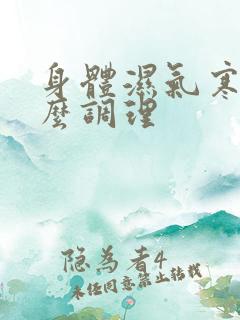 身體濕氣寒
麼調理
隐为者4
未经同意禁止转载